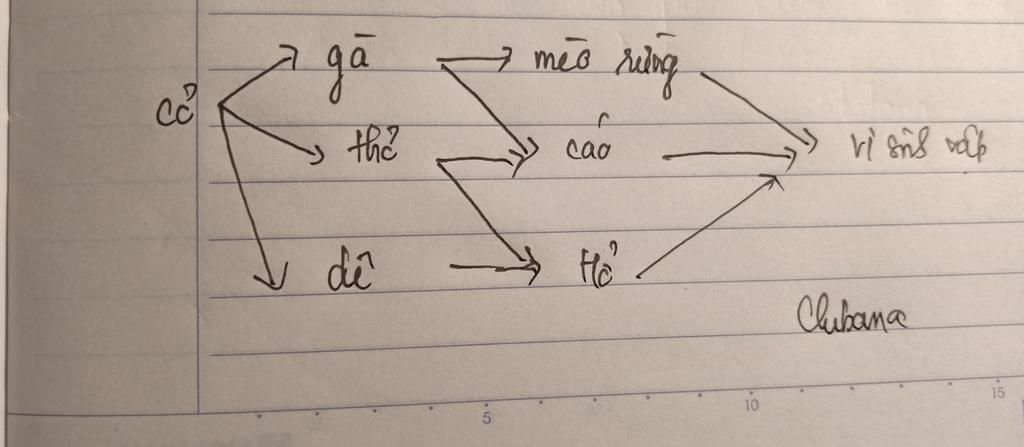 gà mèo rừng
cỏ
thỏ cáo vi sinh vật
dê Hổ
Clubana
5 10 15